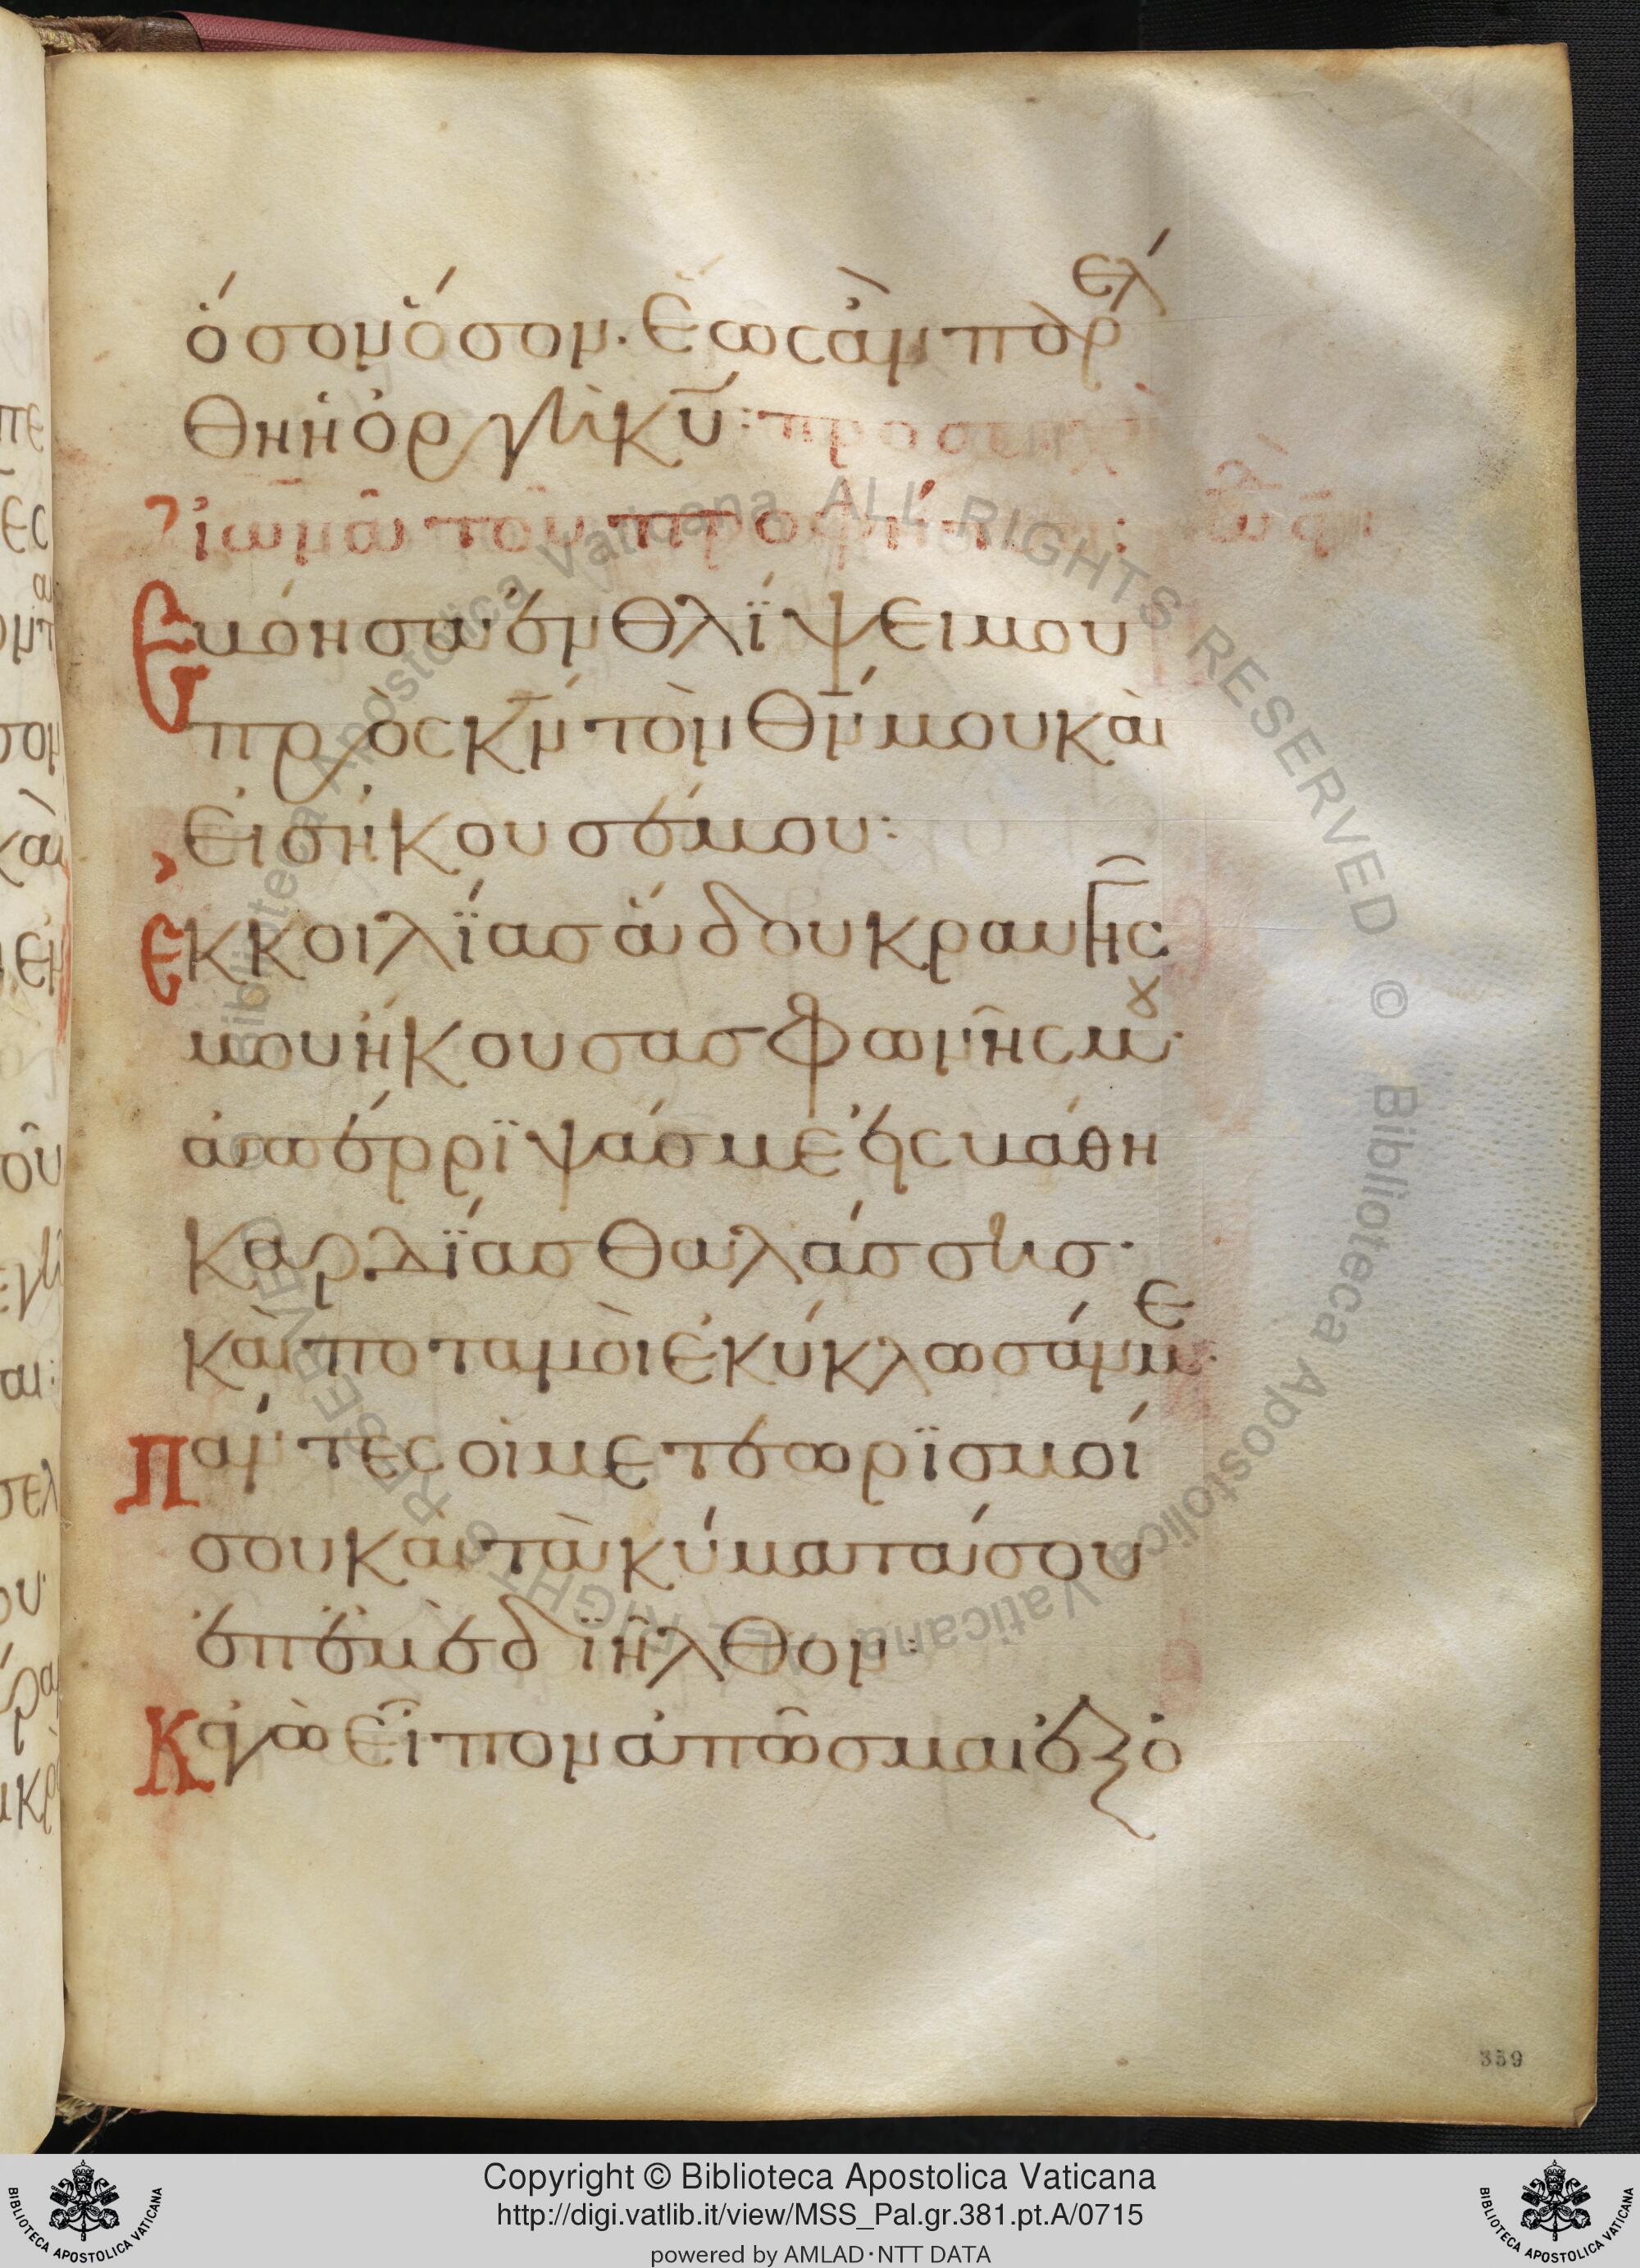 ὅσον ὅσον· ἕως ἂν παρελ
θη ἡ ὀργὴ κυ̅: προσευχὴ
ἰωνᾶ τοῦ προφήτου: ᾠδ
Ἐβόησα ἐν θλίψει μου
πρὸς κν̅ τὸν θν̅ μου καὶ
εἰσήκουσέ μου:
Ἐκ κοιλίας ἅδου κραυγῆς
μου ἤκουσας φωνῆς μου·
ἀπέρριψάς με εἰς βάθη
καρδίας θαλάσσης·
καὶ ποταμοὶ ἐκύκλωσάν με·
Πάντες οἱ μετεωρισμοί
σου καὶ τὰ κύματά σου
ἐπ' ἐμὲ διῆλθον:
Κἀγὼ εἶπον ἀπῶσμαι ἐξ ὀ
359
Biblioteca Apostolica Vaticana ALL RIGHTS RESERVED © Biblioteca Apostolica Vaticana ALL RIGHTS RESERVED ©
Copyright © Biblioteca Apostolica Vaticana
http://digi.vatlib.it/view/MSS_Pal.gr.381.pt.A/0715
powered by AMLAD·NTT DATA
BIBLIOTECA APOSTOLICA VATICANA
BIBLIOTECA APOSTOLICA VATICANA